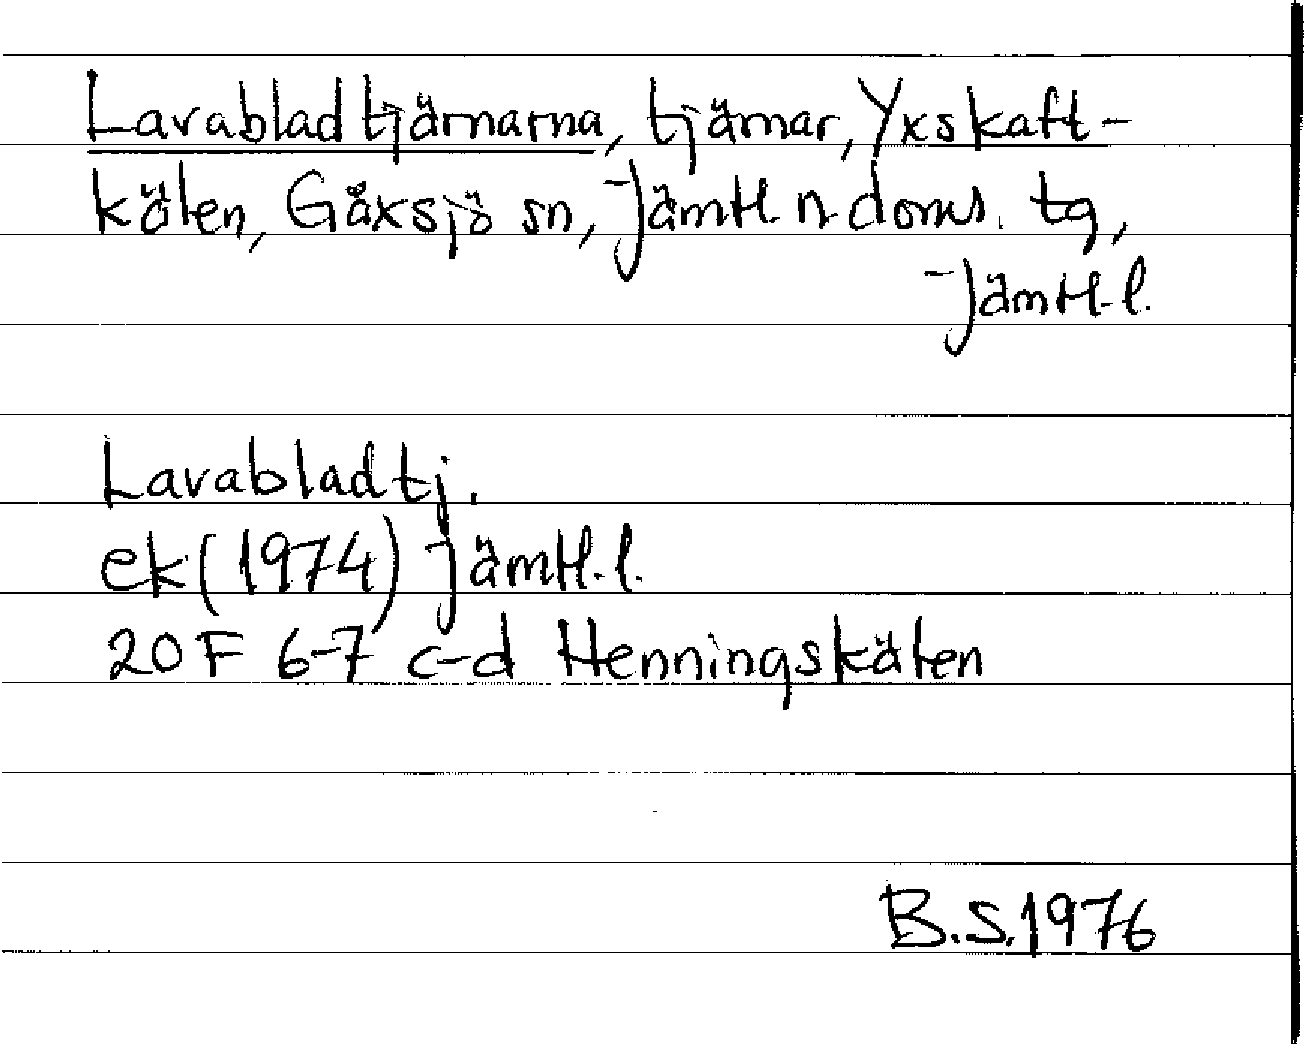 Lavabladtjärnarna, tjärnar, Yxskaft-
kälen, Gåxsjö sn, Jämtl. n. doms. tg,
Jämtl. l.
Lavabladtj.
ek (1974) Jämtl. l.
20 F 6-7 c-d Henningskälen
B.S. 1976